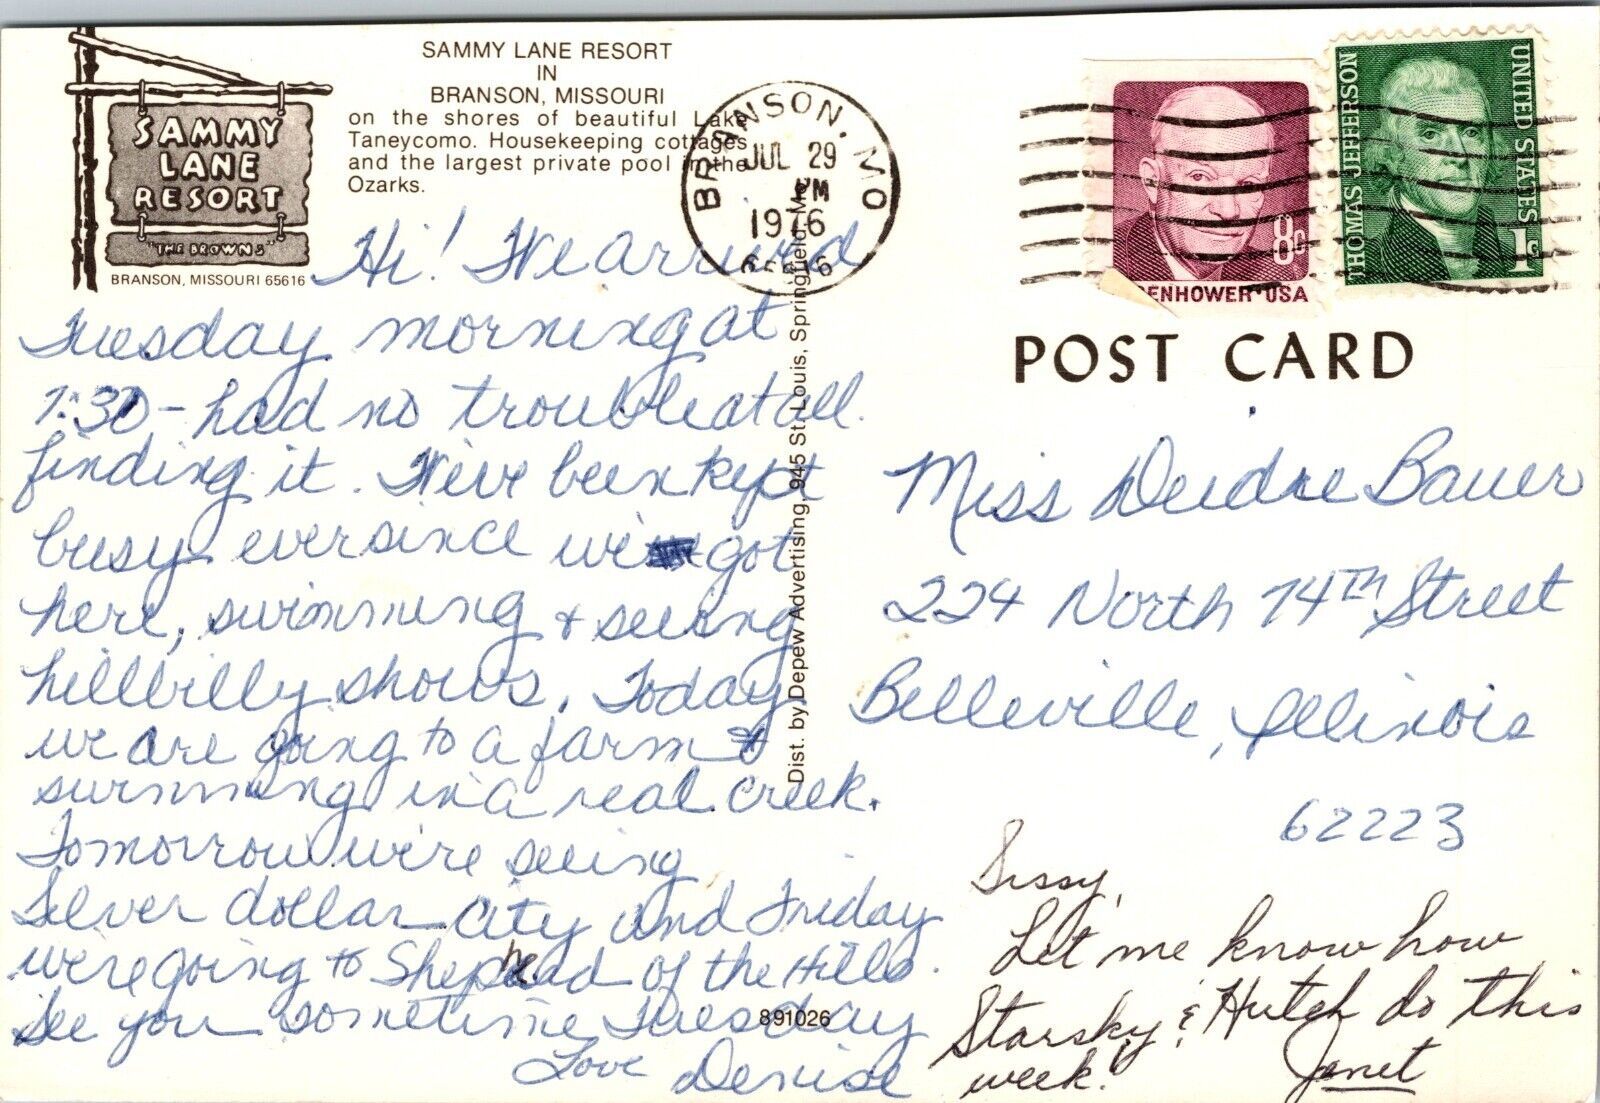 SAMMY LANE RESORT
IN
BRANSON, MISSOURI
on the shores of beautiful Lake
Taneycomo. Housekeeping cottages
and the largest private pool in the
Ozarks.
SAMMY
LANE
RESORT
"THE BROWNS"
BRANSON, MISSOURI 65616
BRANSON, MO
JUL 29
PM
1976
EISENHOWER·USA
8c
THOMAS JEFFERSON
UNITED STATES
1c
POST CARD
Hi! We arrived
Tuesday morning at
7:30 - had no trouble at all
finding it. We've been kept
busy ever since we got
here, swimming & seeing
hillbilly shows. Today
we are going to a farm &
swimming in a real creek.
Tomorrow we're seeing
Silver dollar City and Friday
we're going to Shepherd of the Hills.
See you sometime Tuesday
Love Denise
Dist. by Depew Advertising, 945 St. Louis, Springfield, Mo.
891026
Miss Deidre Bauer
224 North 74TH Street
Belleville, Illinois
62223
Sissy,
Let me know how
Starsky & Hutch do this
week!
Janet